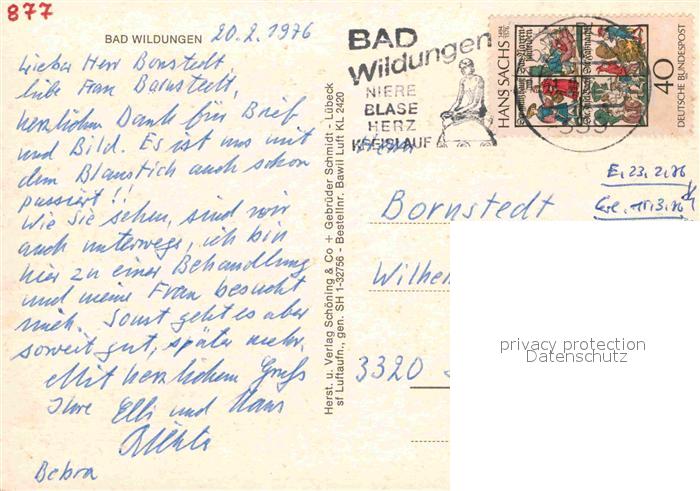 877
BAD WILDUNGEN 20.2.1976
Lieber Herr Bornstedt,
liebe Frau Bornstedt,
herzlichen Dank für Brief
und Bild. Es ist uns mit
dem Blaustich auch schon
passiert!!
Wie Sie sehen, sind wir
auch unterwegs, ich bin
hier zu einer Behandlung
und meine Frau besucht
mich. Sonst geht es aber
soweit gut, später mehr.
Mit herzlichem Gruß
Ihre Elli und Hans
Bebra
Herst. u. Verlag Schöning & Co + Gebrüder Schmidt - Lübeck
sf Luftaufn., gen. SH 1-32756 - Bestellnr. Bawil Luft KL 2420
BAD
Wildungen
NIERE
BLASE
HERZ
KREISLAUF
HANS SACHS
40
DEUTSCHE BUNDESPOST
E. 23.2.76
Bornstedt
Wilhe
3320
privacy protection
Datenschutz